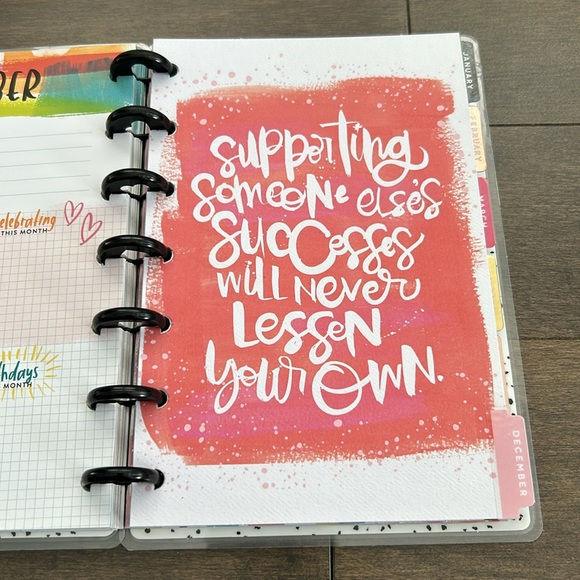 BER
celebrating
THIS MONTH
hdays
MONTH
supporting
someone else's
successes
will never
lessen
your own.
JANUARY
FEBRUARY
MARCH
DECEMBER